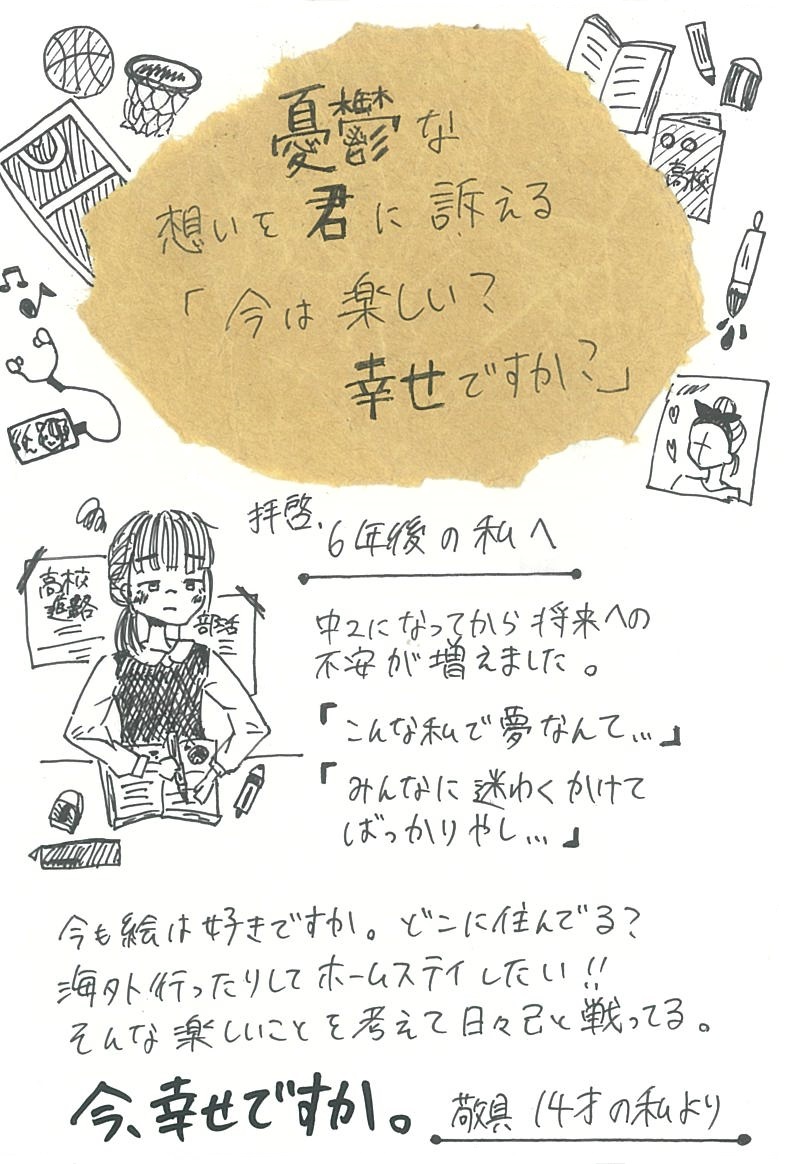 憂鬱な
想いを君に訴える
「今は楽しい?
幸せですか?」
高校
拝啓、
6年後の私へ
高校
進路
部活
中2になってから将来への
不安が増えました。
『こんな私で夢なんて…』
『みんなに迷わくかけて
ばっかりやし…』
今も絵は好きですか。どこに住んでる?
海外行ったりしてホームステイしたい!!
そんな楽しいことを考えて日々己と戦ってる。
今、幸せですか。
敬具 14才の私より